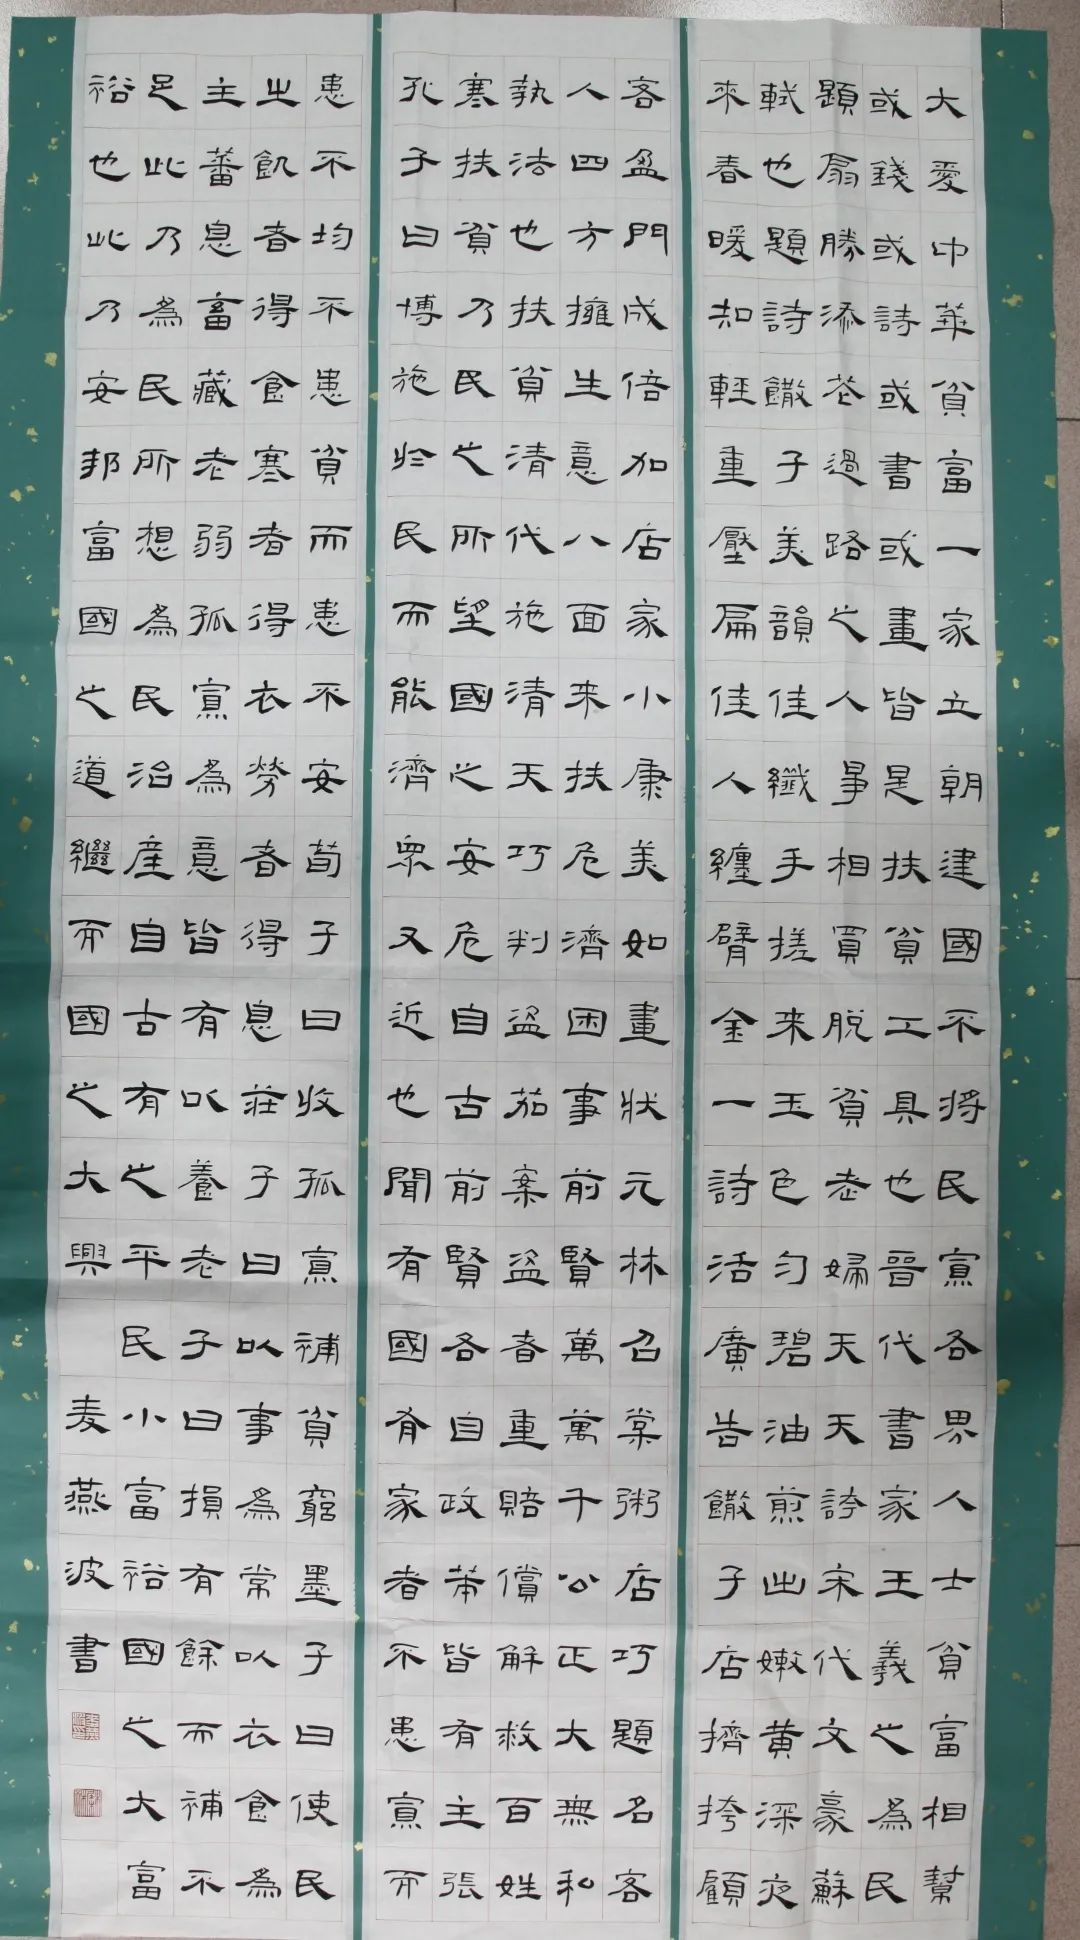 大愛中華貧富一家立朝建國不將民寡各界人士貧富相幫
或錢或詩或書或畫皆是扶貧工具也晉代書家王羲之為民
題扇勝添花過路之人爭相買脫貧老婦天天誇宋代文豪蘇
軾也題詩饊子美韻佳纖手搓来玉色勻碧油煎出嫩黃深夜
來春暖知輕重壓扁佳人纏臂金一詩活廣告饊子店擠挎顧
客盈門成倍加店家小康美如畫狀元林召棠粥店巧題名客
人四方擁生意八面来扶危濟困事前賢萬萬千公正大無私
執法也扶貧清代施清天巧判盜茄案盜者重賠償解救百姓
寒扶貧乃民之所望國之安危自古前賢各自政策皆有主張
孔子曰博施於民而能濟眾又近也聞有國有家者不患寡而
患不均不患貧而患不安荀子曰收孤寡補貧窮墨子曰使民
之飢者得食寒者得衣勞者得息莊子曰以事為常以衣食為
主蕃息畜藏老弱孤寡為意皆有以養老子曰損有餘而補不
足此乃為民所想為民治產自古有之平民小富裕國之大富
裕也此乃安邦富國之道繼而國之大興
麦燕波書